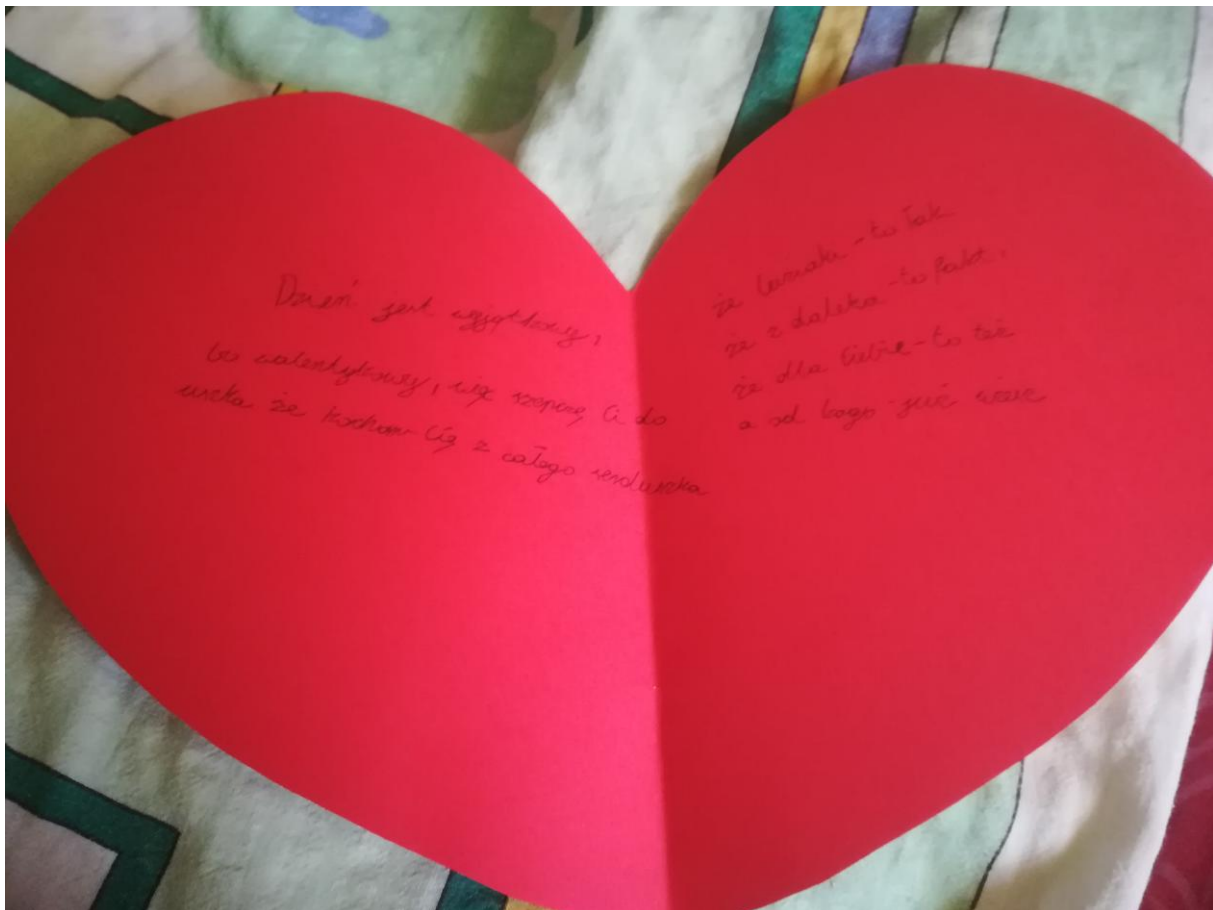 Dzień jest wyjątkowy,
bo walentykowy, więc szepczę Ci do
uszka że kocham Cię z całego serduszka
że buziaki - to tak
że z daleka - to fakt,
że dla Ciebie - to też
a od kogo już wiesz